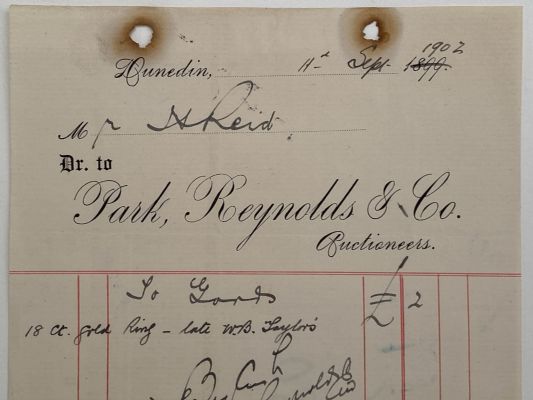 1902
Dunedin, 11th Sept 1899.
Mr H Reid.
Dr. to
Park, Reynolds & Co.
Auctioneers.
To Goods £ 2
18 Ct. gold Ring - late W.B. Taylor's
By Cash